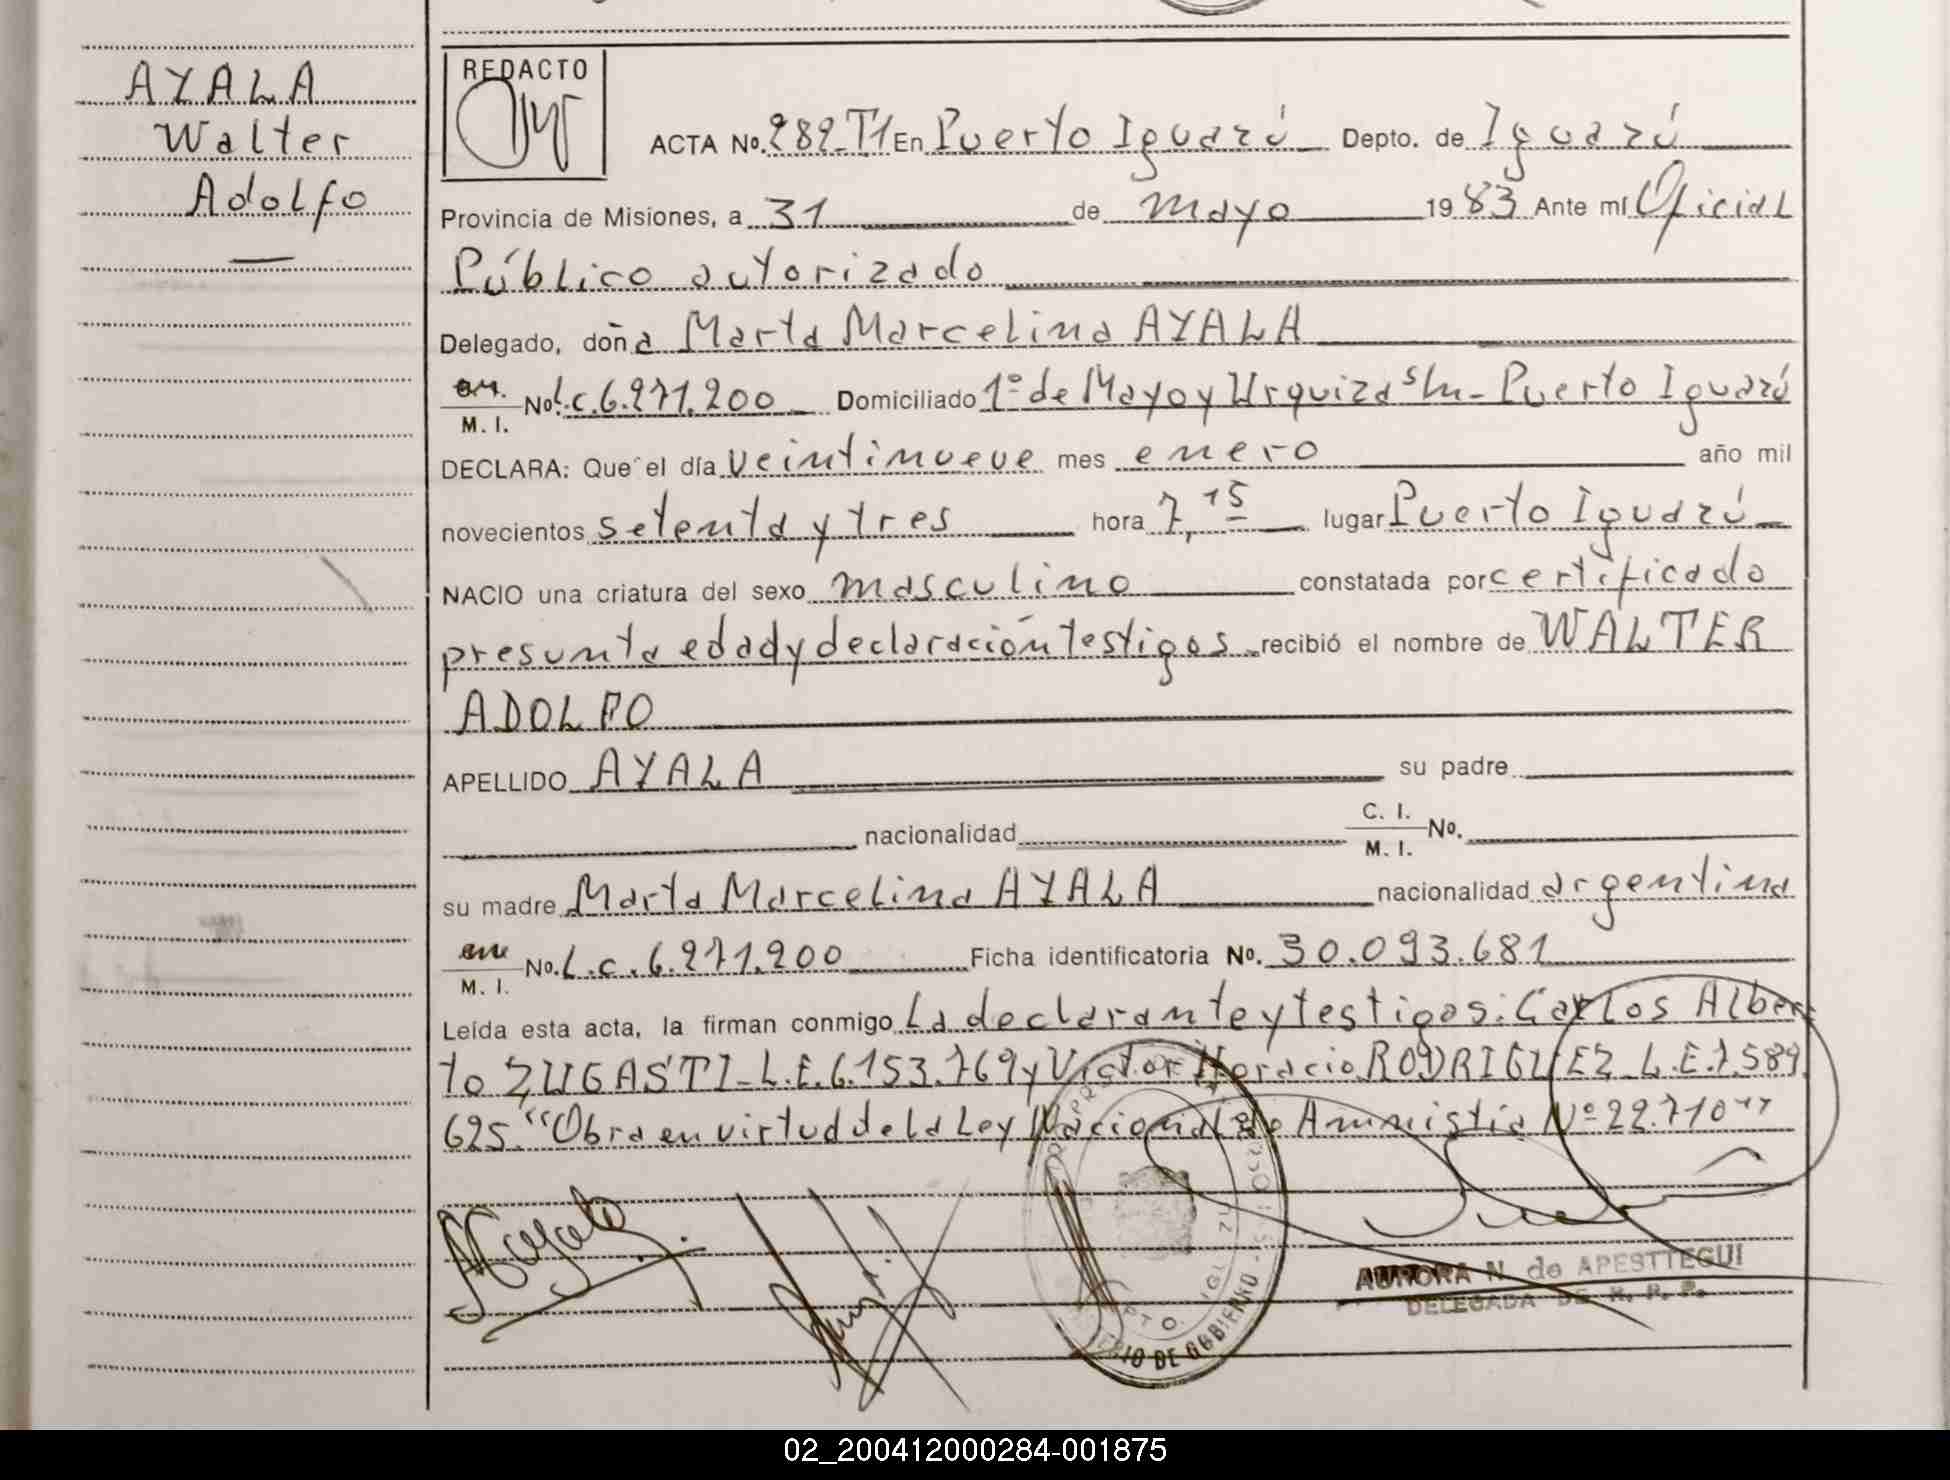 AYALA
Walter
Adolfo
REDACTO
ACTA No. 282-T1 En Puerto Iguazú Depto. de Iguazú
Provincia de Misiones, a 31 de mayo 1983 Ante mí Oficial
Público autorizado
Delegado, doña Marta Marcelina AYALA
M. I. No L.C. 6.271.200 Domiciliado 1º de Mayo y Urquiza s/n - Puerto Iguazú
DECLARA: Que el día veintinueve mes enero año mil
novecientos setenta y tres hora 7,15 lugar Puerto Iguazú
NACIO una criatura del sexo masculino constatada por certificado
presunta edad y declaración testigos recibió el nombre de WALTER
ADOLFO
APELLIDO AYALA su padre
nacionalidad C. I. M. I. No.
su madre Marta Marcelina AYALA nacionalidad argentina
M. I. No. L.C. 6.271.200 Ficha identificatoria No. 30.093.681
Leída esta acta, la firman conmigo La declarante y testigos: Carlos Alber
to ZUGASTI - L.E. 6.153.769 y Victor Horacio RODRIGUEZ - L.E. 7.589.
625. "Obra en virtud de la Ley Nacional de Amnistia Nº 22.710"
AURORA N. de APESTTEGUI
DELEGADA DE R. P. P.
DE GOBIERNO
02_200412000284-001875